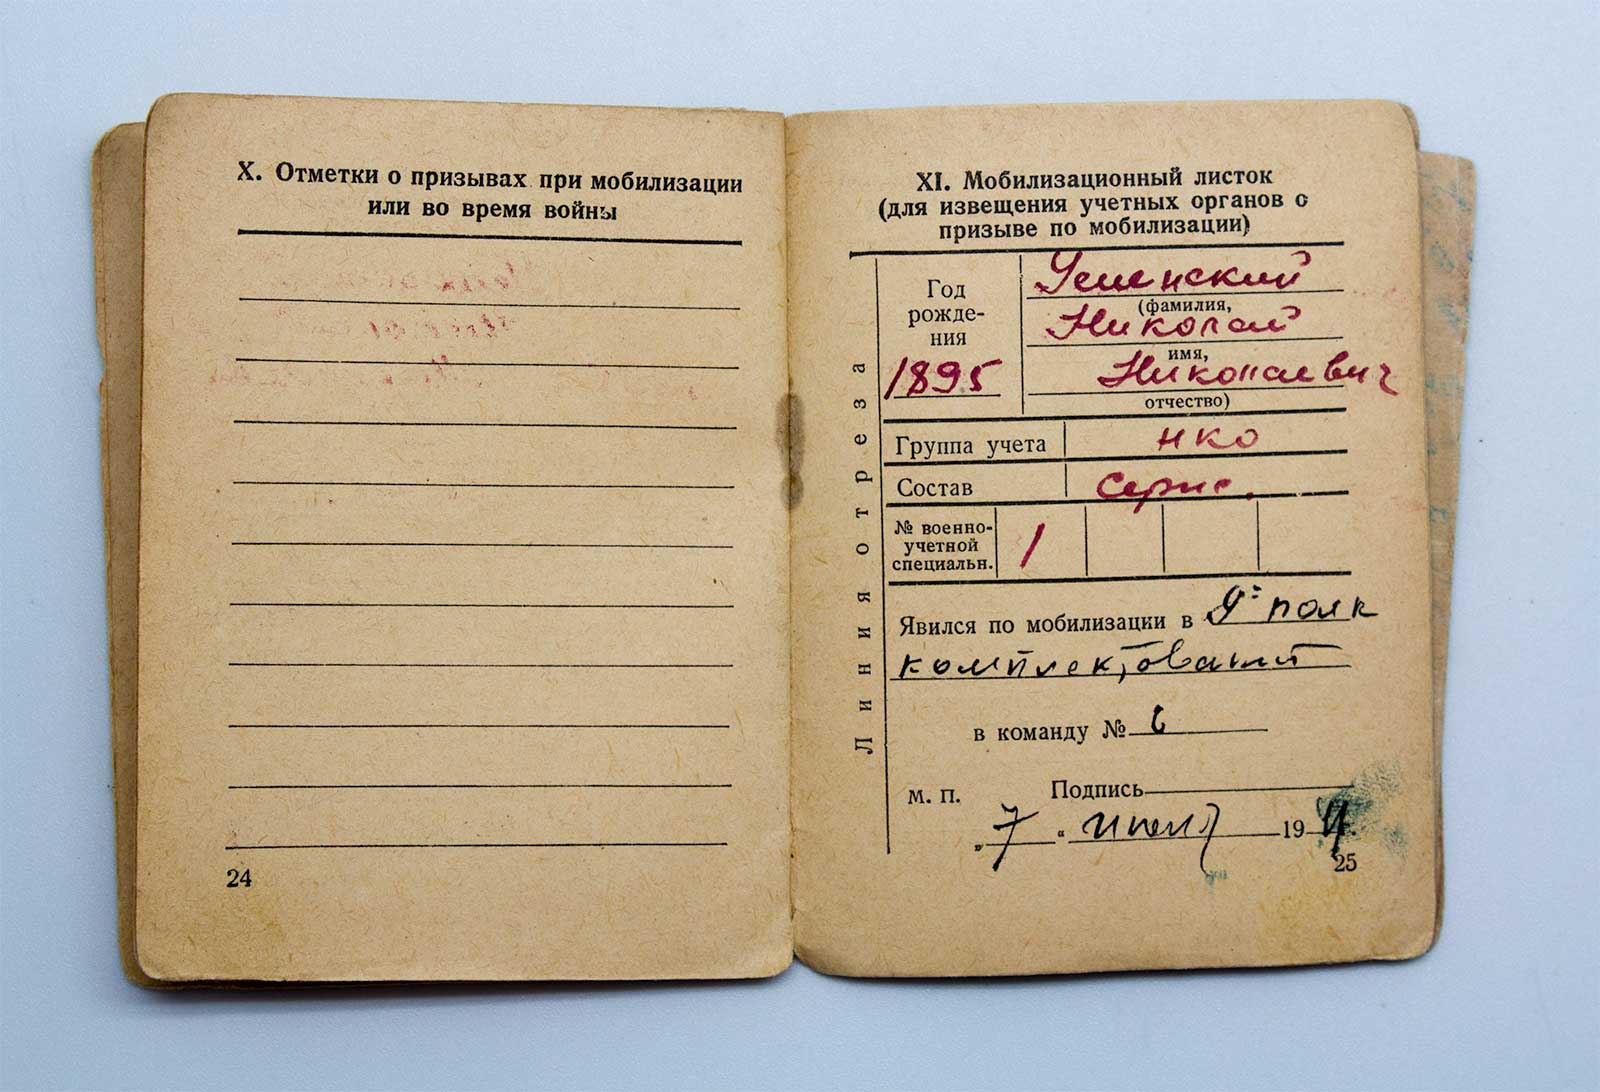 X. Отметки о призывах при мобилизации
или во время войны
24
XI. Мобилизационный листок
(для извещения учетных органов о
призыве по мобилизации)
Линия отреза
Год
рожде-
ния
1895
Успенский
(фамилия,
Николай
имя,
Николаевич
отчество)
Группа учета нко
Состав
№ военно-
учетной
специальн.
1
Явился по мобилизации в 9й полк
комплектования
в команду № 6
М. П. Подпись
„7“ июля 1941.
25